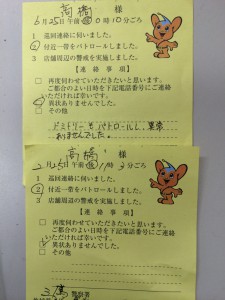 高橋 様
6月25日午前後0時10分ごろ
1 巡回連絡に伺いました。
2 付近一帯をパトロールしました。
3 店舗周辺の警戒を実施しました。
【連絡事項】
□ 再度伺わせていただきたいと思います。
ご都合のよい日時を下記電話番号にご連絡
いただければ幸いです。
異状ありませんでした。
□ その他
パトロールし、異常
ありませんでした。
高橋 様
月25日午前後 時 分ごろ
1 巡回連絡に伺いました。
2 付近一帯をパトロールしました。
3 店舗周辺の警戒を実施しました。
【連絡事項】
□ 再度伺わせていただきたいと思います。
ご都合のよい日時を下記電話番号にご連絡
いただければ幸いです。
異状ありませんでした。
□ その他
警察署